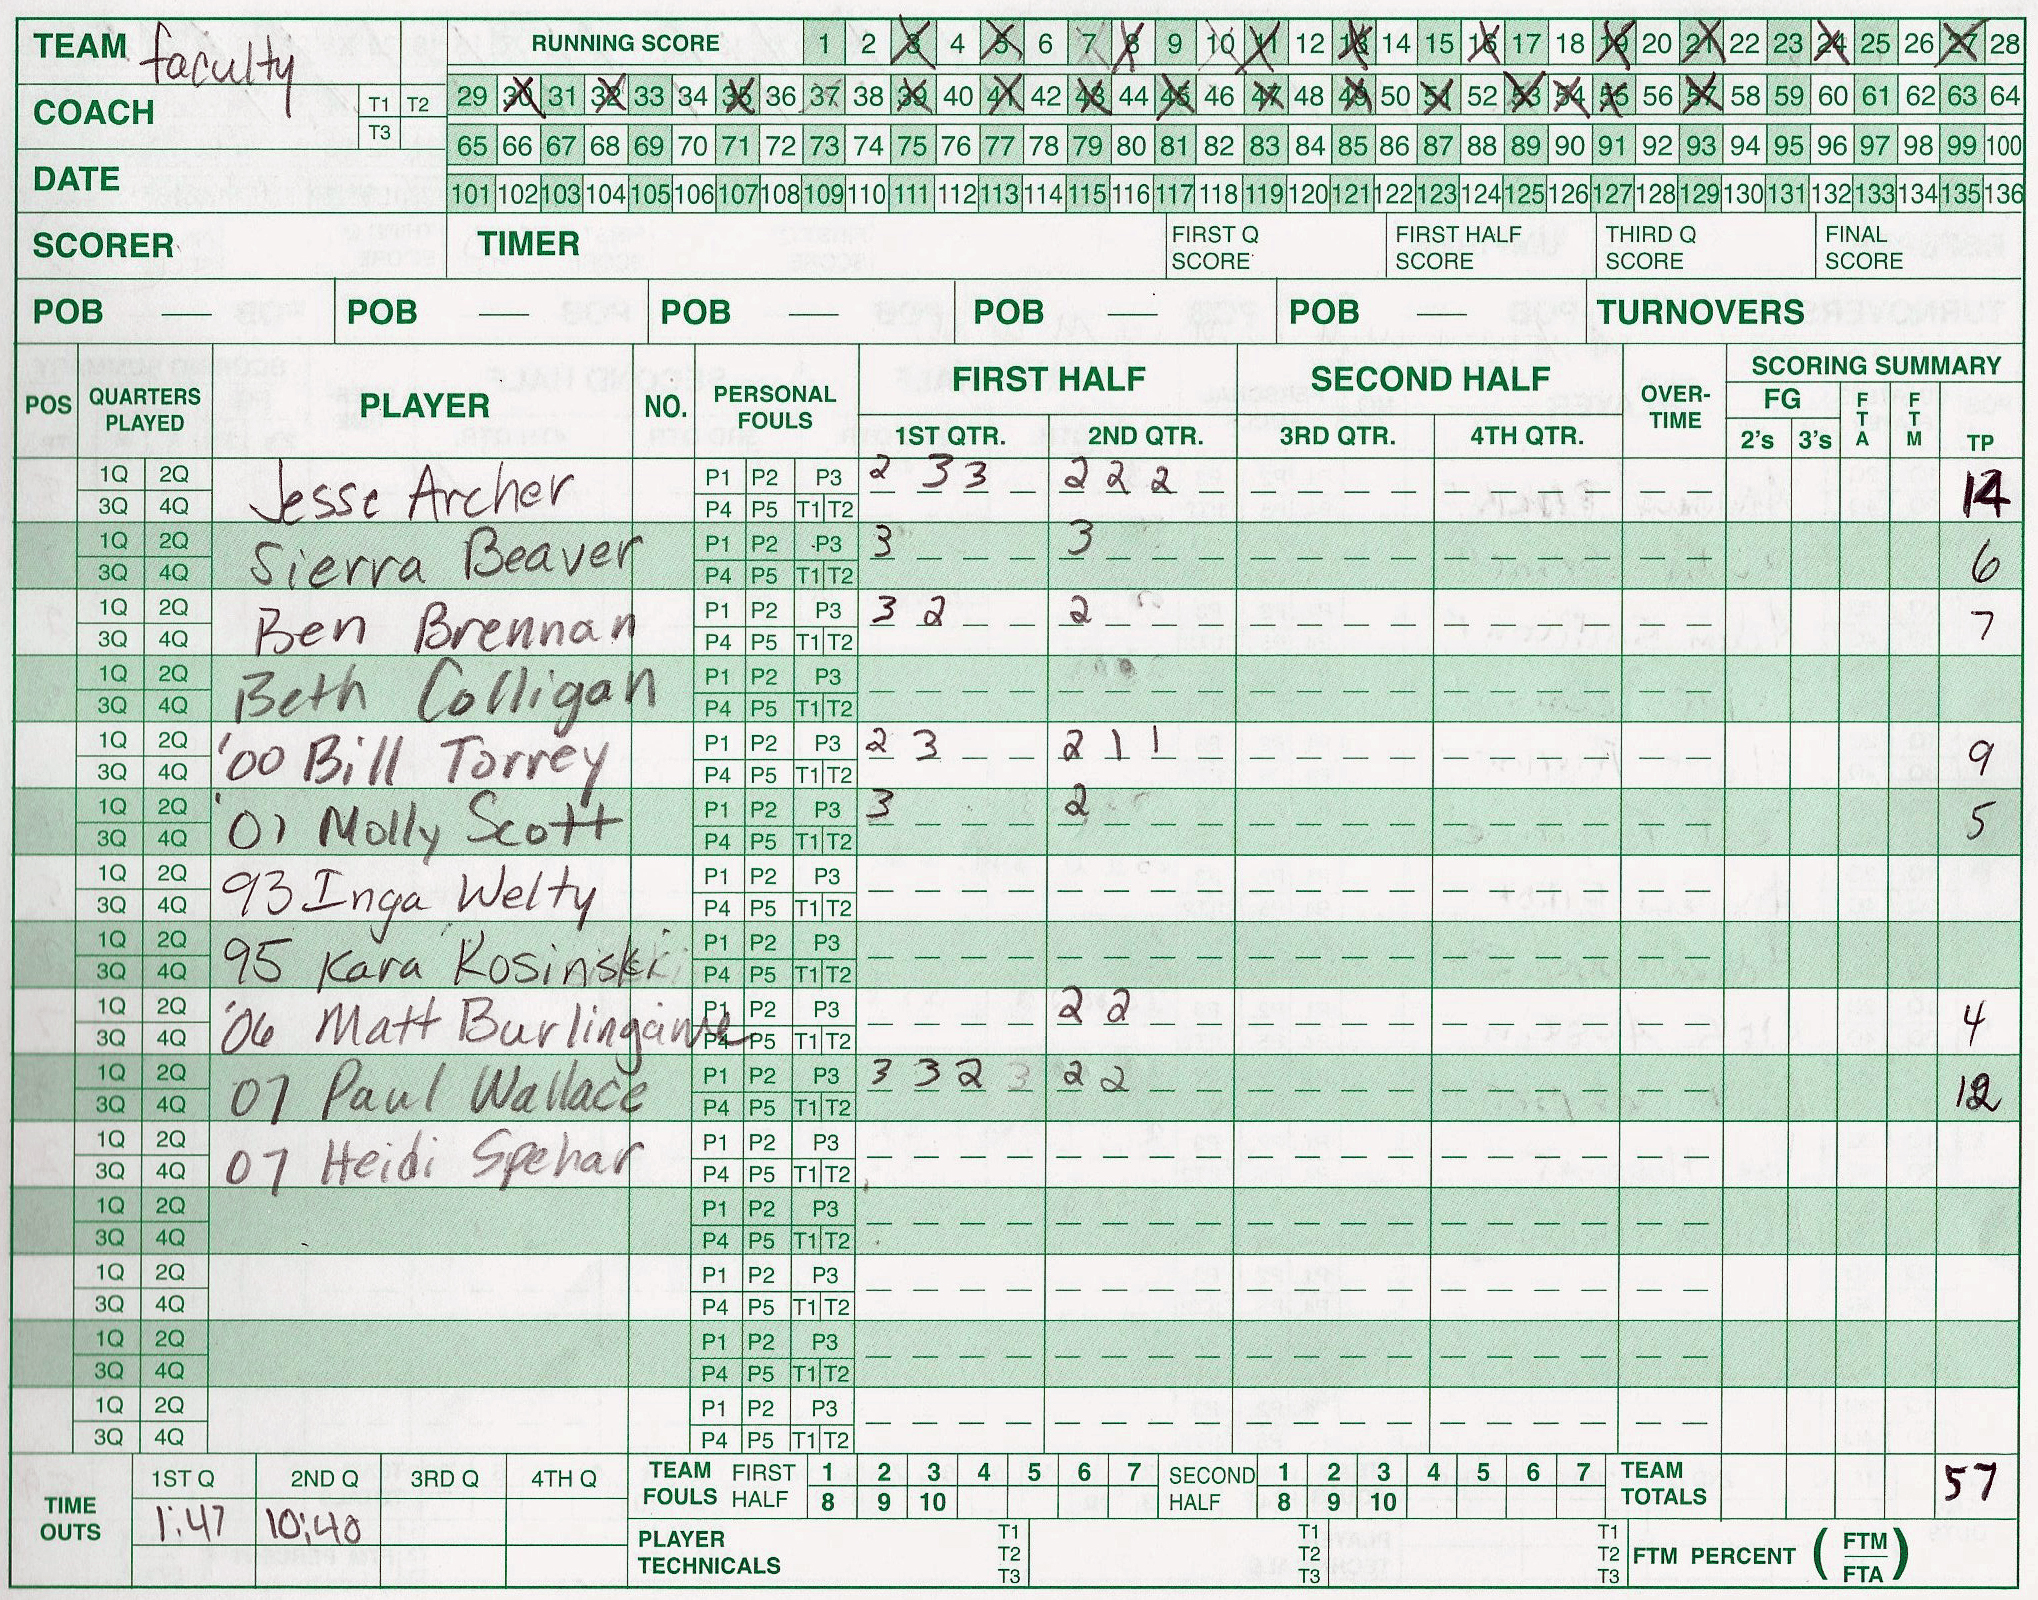 TEAM faculty RUNNING SCORE 1 2 3 4 5 6 7 8 9 10 11 12 13 14 15 16 17 18 19 20 21 22 23 24 25 26 27 28
COACH T1 T2 T3 29 30 31 32 33 34 35 36 37 38 39 40 41 42 43 44 45 46 47 48 49 50 51 52 53 54 55 56 57 58 59 60 61 62 63 64
65 66 67 68 69 70 71 72 73 74 75 76 77 78 79 80 81 82 83 84 85 86 87 88 89 90 91 92 93 94 95 96 97 98 99 100
DATE 101 102 103 104 105 106 107 108 109 110 111 112 113 114 115 116 117 118 119 120 121 122 123 124 125 126 127 128 129 130 131 132 133 134 135 136
SCORER TIMER FIRST Q SCORE FIRST HALF SCORE THIRD Q SCORE FINAL SCORE
POB — POB — POB — POB — POB — TURNOVERS
POS QUARTERS PLAYED PLAYER NO. PERSONAL FOULS FIRST HALF SECOND HALF OVER-TIME SCORING SUMMARY
1ST QTR. 2ND QTR. 3RD QTR. 4TH QTR. FG 2's 3's FTA FTM TP
1Q 2Q Jesse Archer P1 P2 P3 2 3 3 2 2 2 14
3Q 4Q P4 P5 T1 T2
1Q 2Q Sierra Beaver P1 P2 P3 3 3 6
3Q 4Q P4 P5 T1 T2
1Q 2Q Ben Brennan P1 P2 P3 3 2 2 7
3Q 4Q P4 P5 T1 T2
1Q 2Q Beth Colligan P1 P2 P3
3Q 4Q P4 P5 T1 T2
1Q 2Q '00 Bill Torrey P1 P2 P3 2 3 2 1 1 9
3Q 4Q P4 P5 T1 T2
1Q 2Q '01 Molly Scott P1 P2 P3 3 2 5
3Q 4Q P4 P5 T1 T2
1Q 2Q 93 Inga Welty P1 P2 P3
3Q 4Q P4 P5 T1 T2
1Q 2Q 95 Kara Kosinski P1 P2 P3
3Q 4Q P4 P5 T1 T2
1Q 2Q '06 Matt Burlingame P1 P2 P3 2 2 4
3Q 4Q P4 P5 T1 T2
1Q 2Q 07 Paul Wallace P1 P2 P3 3 3 2 3 2 2 12
3Q 4Q P4 P5 T1 T2
1Q 2Q 07 Heidi Spehar P1 P2 P3
3Q 4Q P4 P5 T1 T2
1Q 2Q P1 P2 P3
3Q 4Q P4 P5 T1 T2
1Q 2Q P1 P2 P3
3Q 4Q P4 P5 T1 T2
1Q 2Q P1 P2 P3
3Q 4Q P4 P5 T1 T2
1Q 2Q P1 P2 P3
3Q 4Q P4 P5 T1 T2
TIME OUTS 1ST Q 2ND Q 3RD Q 4TH Q TEAM FOULS FIRST HALF 1 2 3 4 5 6 7 SECOND HALF 1 2 3 4 5 6 7 TEAM TOTALS 57
1:47 10:40 8 9 10 8 9 10
PLAYER TECHNICALS T1 T2 T3 T1 T2 T3 T1 T2 T3 FTM PERCENT (FTM/FTA)